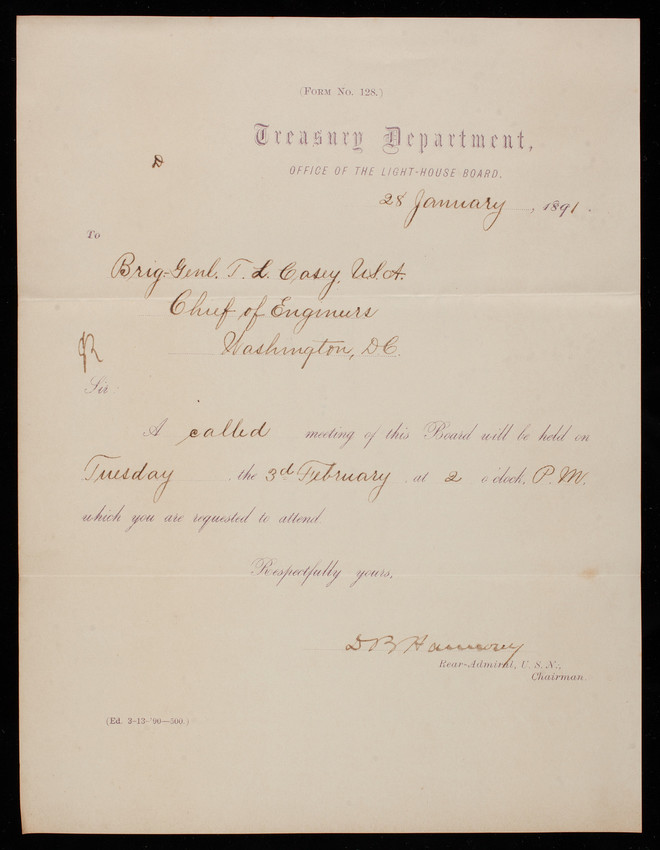 (Form No. 128.)
Treasury Department,
OFFICE OF THE LIGHT-HOUSE BOARD,
28 January, 1891.
To
Brig. Genl. T. L. Casey, U.S.A.
Chief of Engineers
Washington, D.C.
Sir:
A called meeting of this Board will be held on
Tuesday, the 3d February, at 2 o'clock, P.M.
which you are requested to attend.
Respectfully yours,
D B Harmony
Rear-Admiral, U. S. N.,
Chairman.
(Ed. 3-13-'90—500.)